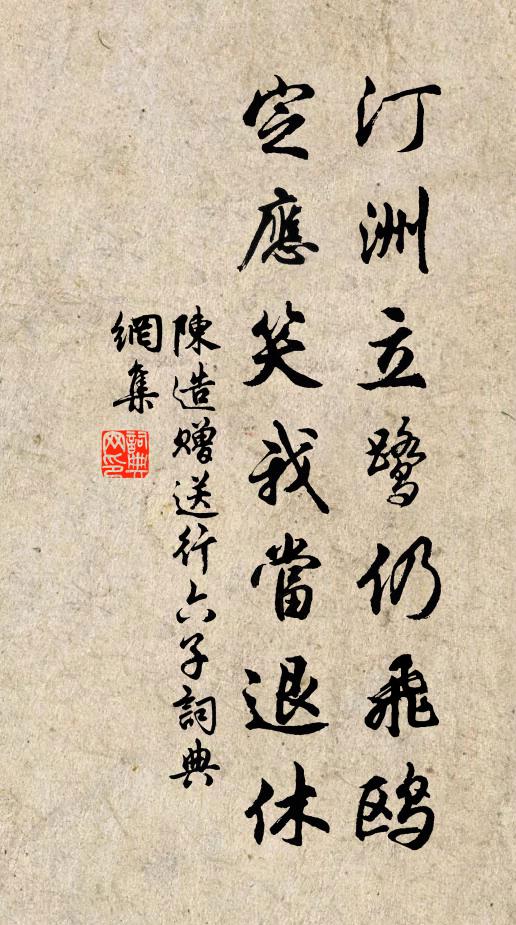 汀洲立鷺仍飛鷗
定應笑我當退休
陳造贈送行六子詞典
網集
詞典網印